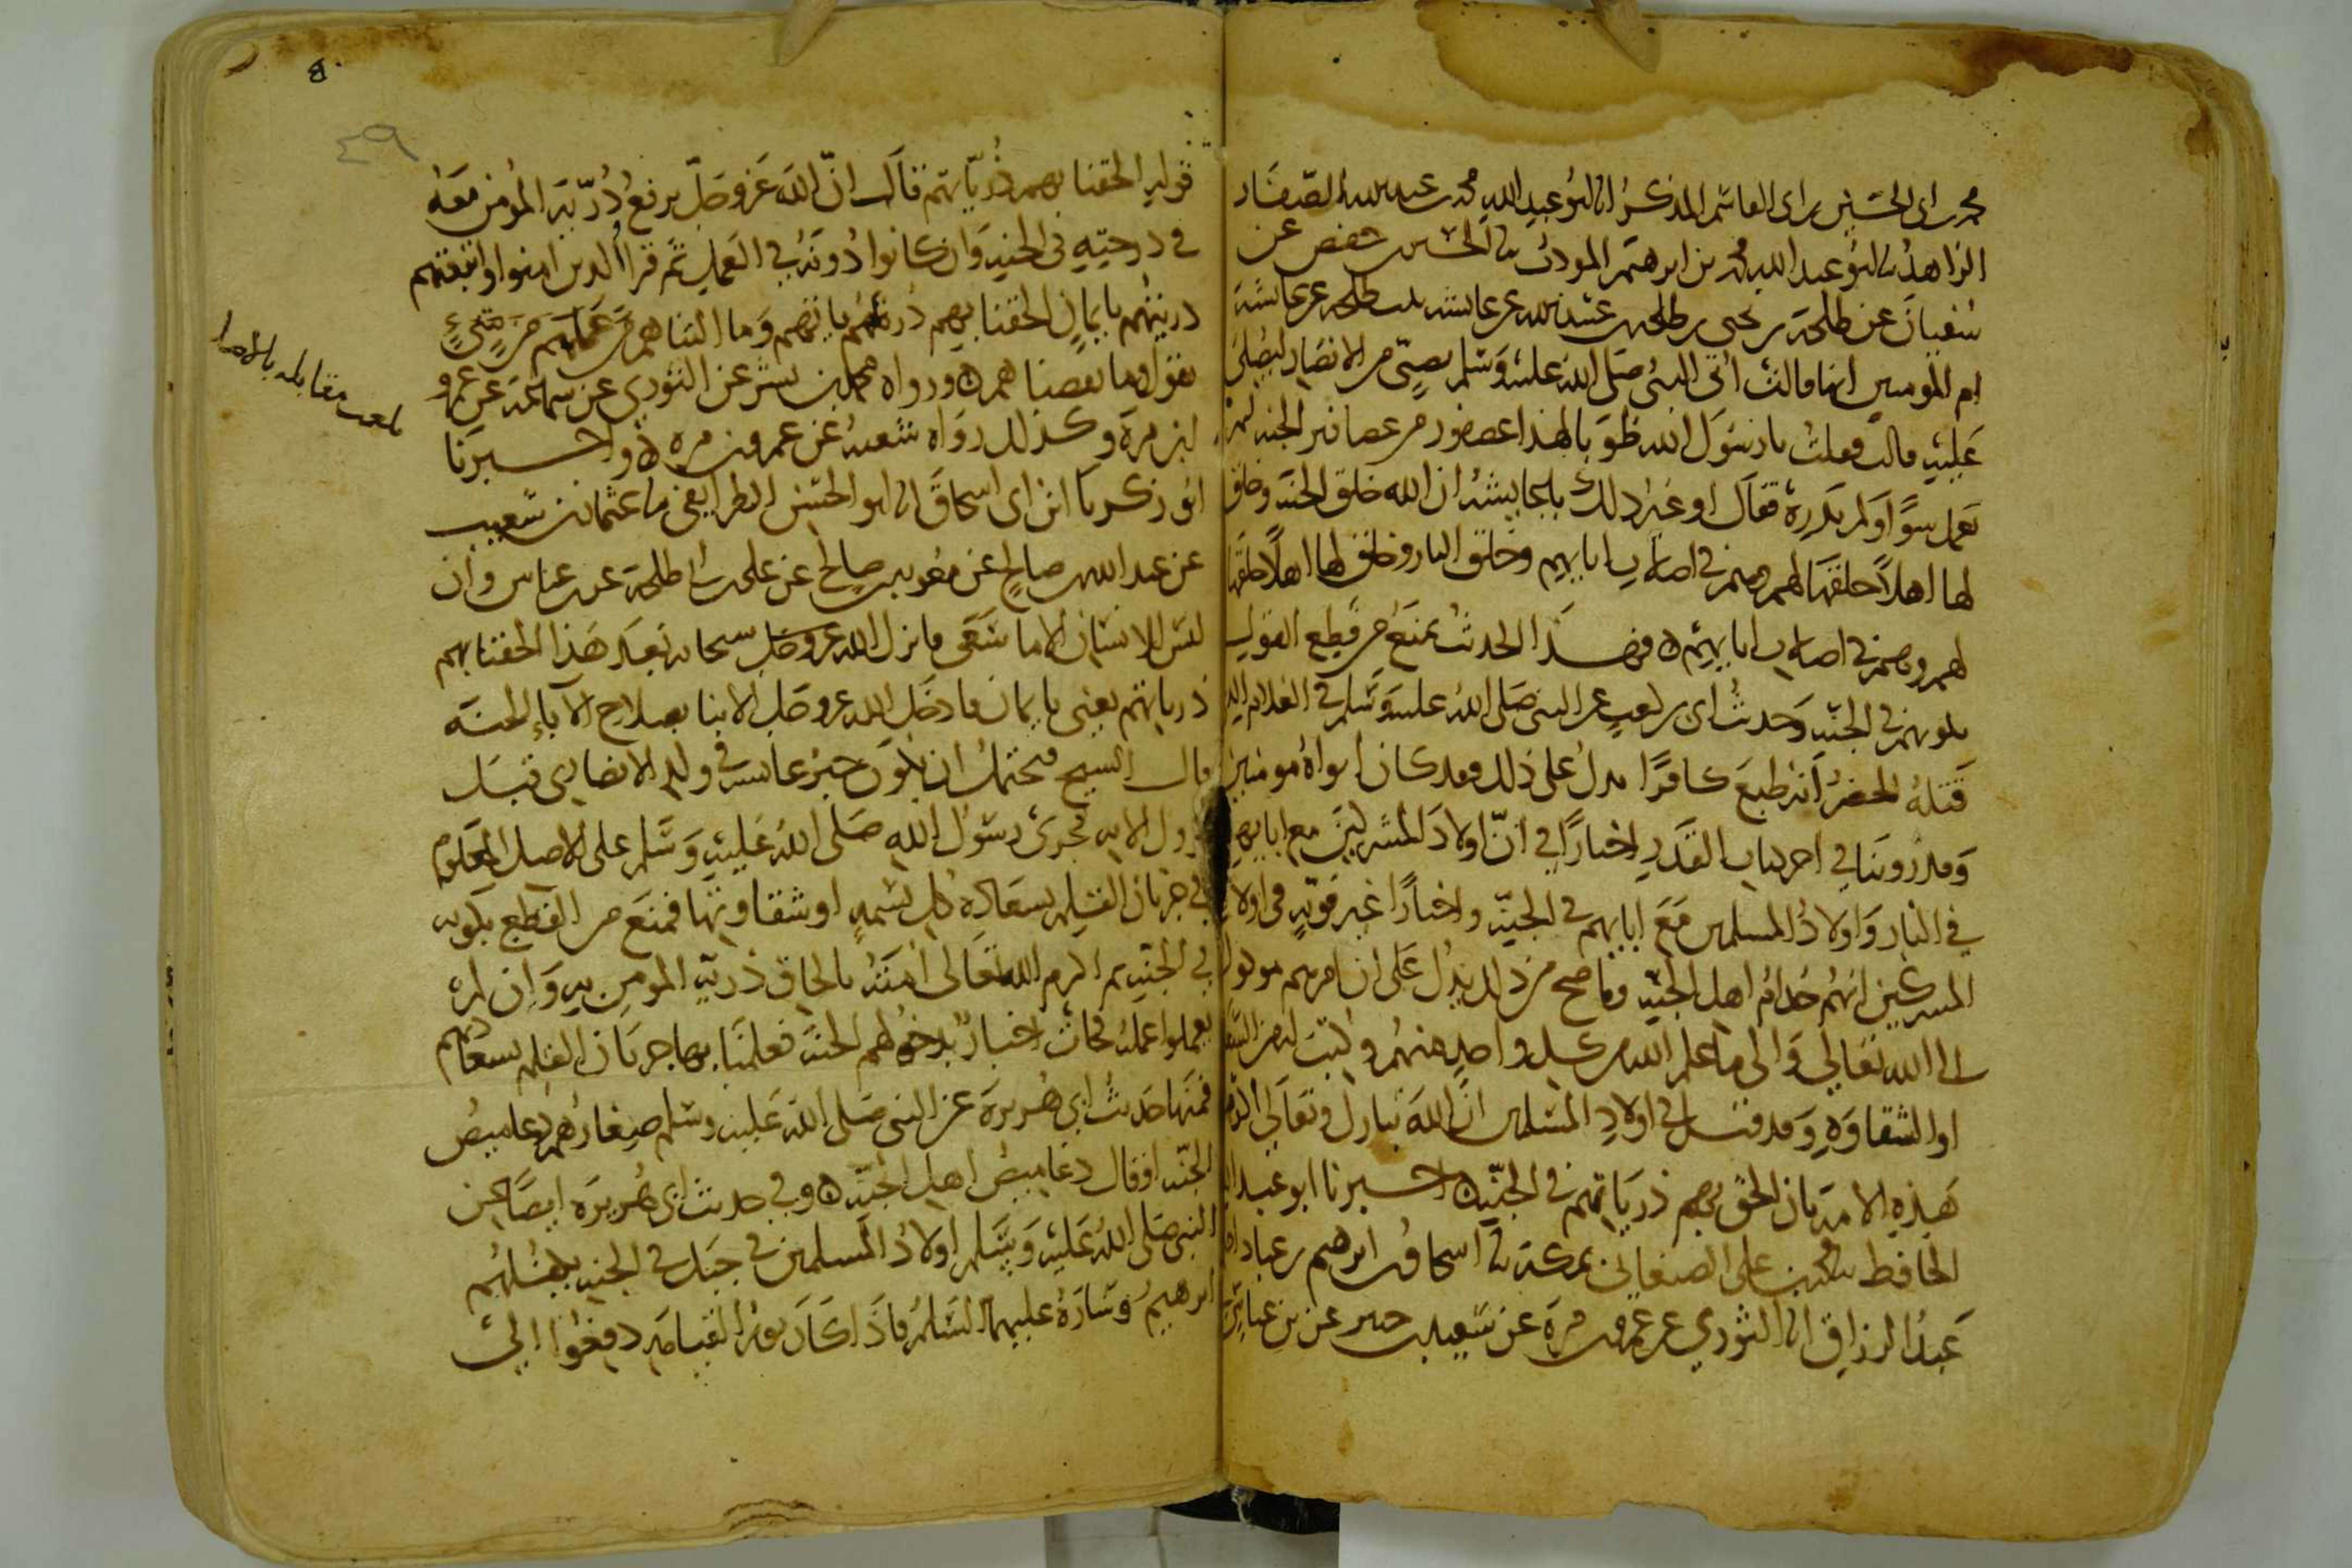 محمد بن ابي الحسين بن ابي القاسم المذكر انا ابو عبد الله محمد بن عبد الله الصفار
الزاهد ثنا ابو عبد الله محمد بن ابرهيم المودب ثنا الحسين بن حفص عن
سفيان عن طلحة بن يحيى بن طلحة بن عبيد الله عن عائشة بنت طلحة عن عائشة
ام المومنين انها قالت اتي النبي صلى الله عليه وسلم بصبي من الانصار ليصلي
عليه قالت فقلت يا رسول الله طوبا لهذا عصفور من عصافير الجنة لم
يعمل سوًا ولم يدره فقال او غير ذلك يا عايشة ان الله خلق الجنة وخلق
لها اهلاً خلقها لهم وهم في اصلاب ابايهم وخلق النار وخلق لها اهلاً خلقها
لهم وهم في اصلاب ابايهم ٥ فهذا الحديث يمنع من قطع القول
بكونهم في الجنة وحديث ابي بن كعب عن النبي صلى الله عليه وسلم في الغلام الذي
قتله الخضر انه طبع كافرًا يدل على ذلك وقد كان ابواه مومنين
وقد روينا في اخر كتاب القدر اخبارًا في ان اولاد المشركين مع ابايهم
في النار واولاد المسلمين مع ابايهم في الجنة واخبارًا غير قوية في اولاد
المسركين انهم خدام اهل الجنة وما صح من ذلك يدل على ان امرهم موكول
الى الله تعالى والى ما علم الله من كل واحد منهم وكتب له من السعادة
او الشقاوة وقد قيل في اولاد المسلمين ان الله تبارك وتعالى اكرم
هذه الامة بان الحق بهم ذرياتهم في الجنة ٥ اخبرنا ابو عبد الله
الحافظ ثنا محمد بن علي الصنعاني بمكة ثنا اسحاق بن ابرهيم بن عباد انا
عبد الرزاق انا الثوري عن عمرو بن مرة عن سعيد بن جبير عن بن عباس في
قوله الحقنا بهم ذرياتهم قال ان الله عز وجل يرفع ذرية المؤمن معه
في درجته في الجنة وان كانوا دونه في العمل ثم قرا الذين امنوا واتبعتهم
ذريتهم بايمان الحقنا بهم ذرياتهم وما التناهم من عملهم من شيءٍ
يقول وما نقصناهم ٥ ورواه محمد بن بشر عن الثوري عن سماعة عن عمرو
ابن مرة وكذلك رواه شعبة عن عمرو بن مرة ٥ واخبرنا
ابو زكريا ابن ابي اسحاق انا ابو الحسن الطرايفي ثنا عثمان بن سعيد
عن عبد الله بن صالح عن معوية بن صالح عن علي بن ابي طلحة عن بن عباس وان
ليس للانسان الا ما سعى فانزل الله عز وجل سبحانه بعد هذا الحقنا بهم
ذرياتهم يعني بايمان فادخل الله عز وجل الابنا بصلاح الآباء الجنة
قال الشيخ فيحتمل ان يكون خبر عائشة في ولد الانصاري قبل
نزول الاية فجرى رسول الله صلى الله عليه وسلم على الاصل المعلوم
في جريان القلم بسعادة كل نسمة او شقاوتها فمنع من القطع بكونه
في الجنة ثم اكرم الله تعالى امته بالحاق ذرية المومن به وان لم
يعملوا عمله فجاث اخبار بدخولهم الجنة فعلمنا بها جريان القلم بسعادتهم
فمنها حديث ابي هريرة عن النبي صلى الله عليه وسلم صغارهم دعاميص
الجنة او قال دعاميص اهل الجنة ٥ وفي حديث ابي هريرة ايضا عن
النبي صلى الله عليه وسلم اولاد المسلمين في جبل في الجنة يكفلهم
ابرهيم وسارة عليهما السلم فاذا كان يوم القيامة دفعوا الى
بلغت مقابله بالاصل
٤٩